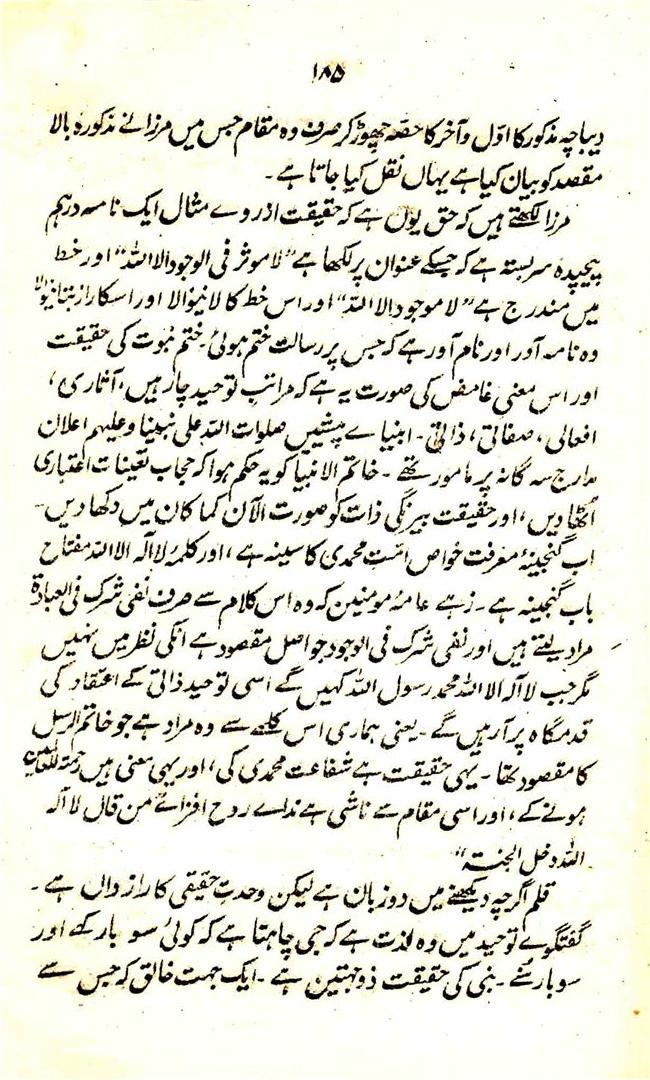 ۱۸۵
دیباچہ مذکور کا اوّل و آخر کا حصّہ چھوڑ کر صرف وہ مقام جس میں مرزا نے مذکورہ بالا
مقصد کو بیان کیا ہے یہاں نقل کیا جاتا ہے۔
مرزا لکھتے ہیں کہ حق یوں ہے کہ حقیقت از روے مثال ایک نامہ درہم
پیچیدہ سربستہ ہے کہ جسکے عنوان پر لکھا ہے "لا موثر فی الوجود الا اللہ" اور خط
میں مندرج ہے "لا موجود الا اللہ" اور اس خط کا لانیوالا اور اسکا راز بتانیوالا
وہ نامہ آور اور نام آور ہے کہ جس پر رسالت ختم ہوئی۔ ختم نبوت کی حقیقت
اور اس معنی غامض کی صورت یہ ہے کہ مراتب توحید چار ہیں، آثاری،
افعالی، صفاتی، ذاتی۔ انبیاے پیشیں صلوات اللہ علی نبینا وعلیہم اعلان
مدارج سہ گانہ پر مامور تھے۔ خاتم الانبیا کو یہ حکم ہوا کہ حجاب تعینات اعتباری
اُٹھا دیں، اور حقیقت بیرنگی ذات کو صورت الآن کما کان میں دکھا دیں۔
اب گنجینۂ معرفت خواص امت محمدی کا سینہ ہے، اور کلمۂ لا الہ الا اللہ مفتاح
باب گنجینہ ہے۔ زہے عامۂ مومنین کہ وہ اس کلام سے صرف نفی شرک فی العبادۃ
مراد لیتے ہیں اور نفی شرک فی الوجود جو اصل مقصود ہے انکی نظر میں نہیں
مگر جب لا الہ الا اللہ محمد رسول اللہ کہیں گے اسی توحید ذاتی کے اعتقاد کی
قدمگاہ پر آ رہیں گے۔ یعنی ہماری اس کلمے سے وہ مراد ہے جو خاتم الرسل
کا مقصود تھا۔ یہی حقیقت ہے شفاعت محمدی کی، اور یہی معنی ہیں رحمۃ للعالمین
ہونے کے، اور اسی مقام سے ناشی ہے نداے روح افزاے "من قال لا الہ
الا اللہ دخل الجنۃ"
قلم اگرچہ دیکھنے میں دو زبان ہے لیکن وحدت حقیقی کا راز داں ہے۔
گفتگوے توحید میں وہ لذت ہے کہ جی چاہتا ہے کہ کوئی سو بار کہے اور
سو بار سُنے۔ نبی کی حقیقت ذو جہتین ہے۔ ایک جہت خالق کہ جس سے